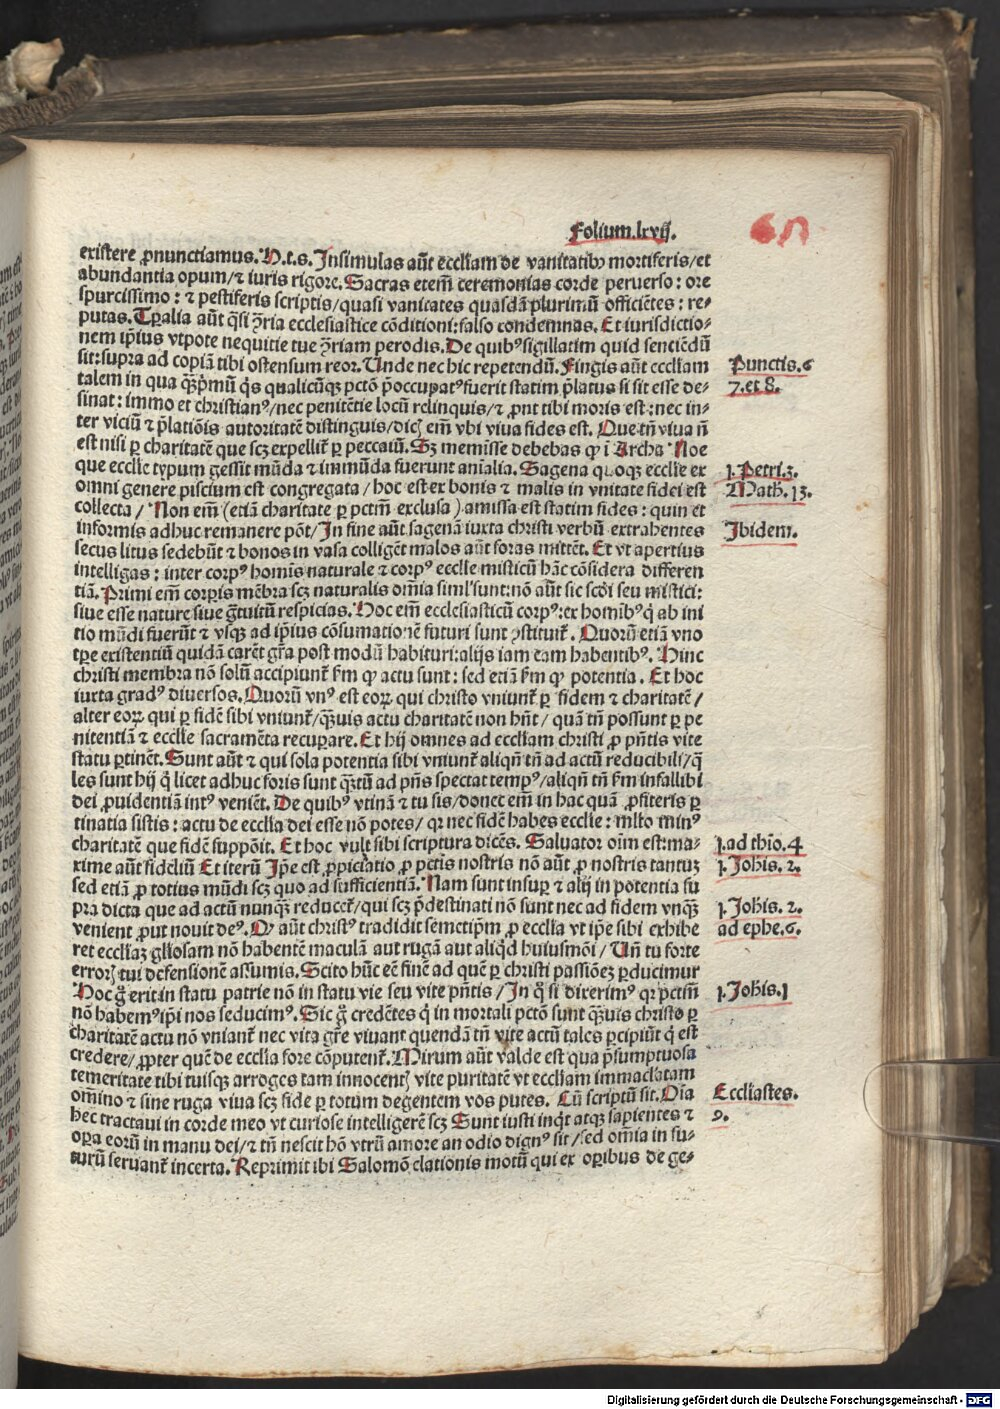 Folium.lxvij.
67
existere ꝓnunctiamus. N.t.s. Insimulas aūt eccliam de vanitatibꝰ mortiferis/et
abundantia opum/⁊ iuris rigore. Sacras etem̄ ceremonias corde peruerso: ore
spurcissimo: ⁊ pestiferis scriptis/quasi vanitates quasdā plurimū officiētes: re⸗
putas. Tꝑalia aūt q̄si ꝯ̄ria ecclesiastice cōditioni: falso condemnas. Et iurisdictio⸗
nem ip̄ius vtpote nequitie tue ꝯ̄riam perodis. De quibꝰ sigillatim quid senciēdū
sit: supra ad copiā tibi ostensum reor. Unde nec hic repetendū. Fingis aūt eccliam
talem in qua q̄ꝫpmū q̄s qualicūqꝫ pctō p̄occupatꝰ fuerit statim p̄latus si sit esse de⸗
sinat: immo et christianꝰ/nec penitētie locū relinquis/⁊ ꝓut tibi moris est: nec in⸗
ter viciū ⁊ p̄latiōis autoritatē distinguis/dicꝭ em̄ vbi viua fides est. Que tn̄ viua n̄
est nisi ꝑ charitatē que scꝫ expellit̄ ꝑ peccatū. Sꝫ meminisse debebas ꝙ i Archa Noe
que ecclie typum gessit mūda ⁊ immūda fuerunt anīalia. Sagena quoqꝫ ecclie ex
omni genere piscium est congregata/hoc est ex bonis ⁊ malis in vnitate fidei est
collecta/Non em̄ (etiā charitate ꝑ pctm̄ exclusa) amissa est statim fides: quin et
informis adhuc remanere pōt/In fine aūt sagenā iuxta christi verbū extrahentes
secus litus sedebūt ⁊ bonos in vasa colligēt malos aūt foras mittēt. Et vt apertius
intelligas: inter corpꝰ homīs naturale ⁊ corpꝰ ecclie misticū hāc cōsidera differen
tiā. Primi em̄ corpis mēbra scꝫ naturalis om̄ia siml̓ sunt: nō aūt sic scd̄i seu mistici:
siue esse nature siue gr̄tuitū respicias. Hoc em̄ ecclesiasticū corpꝰ: ex homībꝰ q̄ ab ini
tio mūdi fuerūt ⁊ vsqꝫ ad ip̄ius cōsumationē futuri sunt ꝯstituit̄. Quorū etiā vno
tꝑe existentiū quidā carēt gr̄a post modū habituri: alijs iam eam habentibꝰ. Hinc
christi membra nō solū accipiunt̄ fm̄ ꝙ actu sunt: sed etiā fm̄ ꝙ potentia. Et hoc
iuxta gradꝰ diuersos. Quorū vnꝰ est eoꝝ qui christo vniunt̄ ꝑ fidem ⁊ charitatē/
alter eoꝝ qui ꝑ fidē sibi vniunt̄/q̄ꝫuis actu charitatē non hn̄t/quā tn̄ possunt ꝑ pe
nitentiā ⁊ ecclie sacramēta recuꝑare. Et hij omnes ad eccliam christi ꝓ pn̄tis vite
statu ꝑtinēt. Sunt aūt ⁊ qui sola potentia sibi vniunt̄ aliqn̄ tn̄ ad actū reducibili/q̄
les sunt hij q̄ licet adhuc foris sunt q̄ꝫtū ad pn̄s spectat tempꝰ/aliqn̄ tn̄ fm̄ infallibi
dei ꝓuidentiā intꝰ veniēt. De quibꝰ vtinā ⁊ tu sis/donec em̄ in hac quā ꝓfiteris ꝑ
tinatia sistis: actu de ecclia dei esse nō potes/qr nec fidē habes ecclie: ml̓to minꝰ
charitatē que fidē supponit. Et hoc vult sibi scriptura dicēs. Saluator oīm est: ma⸗
xime aūt fideliū Et iterū Ip̄e est ꝓpiciatio ꝓ pctis nostris nō aūt ꝓ nostris tantuꝫ
sed etiā ꝓ totius mūdi scꝫ quo ad sufficientiā. Nam sunt insuꝑ ⁊ alij in potentia su
pra dicta que ad actū nunq̄ꝫ reducet̄/qui scꝫ p̄destinati nō sunt nec ad fidem vnq̄ꝫ
venient ꝓut nouit deꝰ. Q aūt christꝰ tradidit semetip̄m ꝓ ecclia vt ip̄e sibi exhibe
ret eccliaꝫ gliosam nō habentē maculā aut rugā aut aliqd̄ huiusmōi/Un̄ tu forte
errorꝭ tui defensionē assumis. Scito hūc eē finē ad quē ꝑ christi passiōeꝫ ꝑducimur
Hoc g̊ erit in statu patrie nō in statu vie seu vite pn̄tis/In q̊ si dixerimꝰ qr pctm̄
nō habemꝰ ip̄i nos seducimꝰ. Sic g̊ credētes q̄ in mortali pctō sunt q̄ꝫuis christo ꝑ
charitatē actu nō vniant̄ nec vita gr̄e viuant quendā tn̄ vite actū tales ꝑcipiūt q̄ est
credere/ꝓpter quē de ecclia fore cōputent̄. Mirum aūt valde est qua p̄sumptuosa
temeritate tibi tuisqꝫ arroges tam innocentꝭ vite puritatē vt eccliam immaclatam
omnino ⁊ sine ruga viua scꝫ fide ꝑ totum degentem vos putes. Cū scriptū sit. Oīa
hec tractaui in corde meo vt curiose intelligerē scꝫ Sunt iusti inq̄t atqꝫ sapientes ⁊
oꝑa eorū in manu dei/⁊ tn̄ nescit hō vtrū amore an odio dignꝰ sit/sed om̄ia in fu⸗
turū seruant̄ incerta. Reprimit ibi Salomō elationis motū qui ex oꝑibus de ge⸗
Punctis. 6
7. et 8.
j. Petri. 3.
Math. 13.
Ibidem.
j. ad thio. 4
j. Johis. 2.
j. Johis. 2.
ad ephe. 6.
j. Johis. 1
Eccliastes.
9.
Digitalisierung gefördert durch die Deutsche Forschungsgemeinschaft - DFG